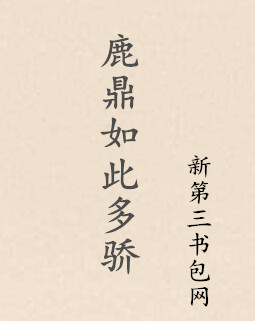 鹿鼎如此多骄
新第三书包网